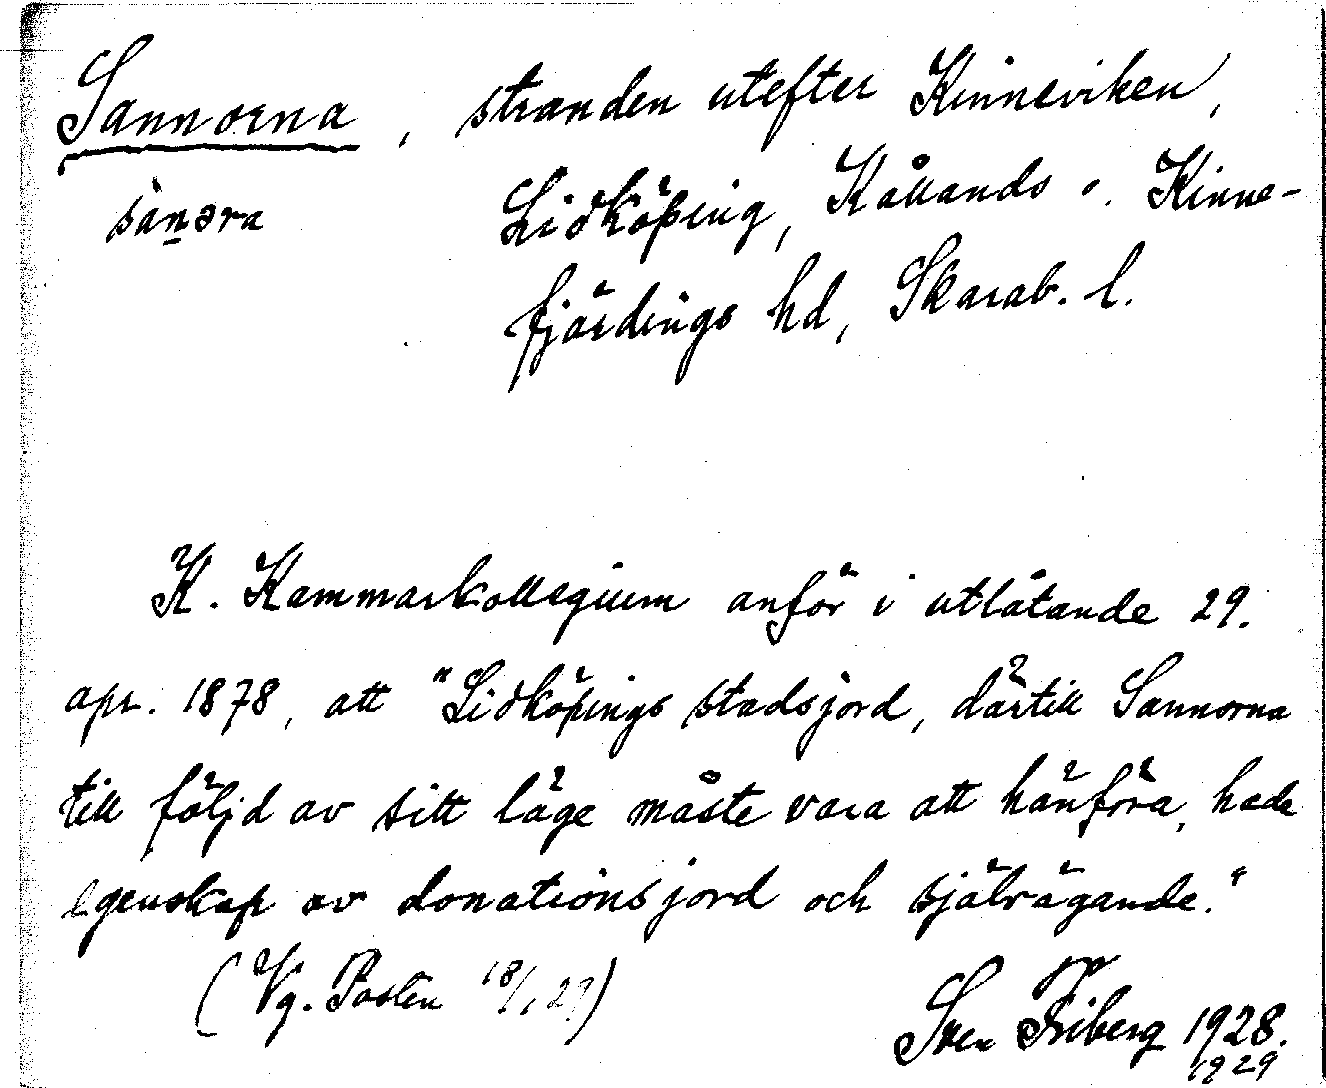 Sannorna, stranden utefter Kinneviken,
sànəra Lidköping, Kållands o. Kinne-
fjärdings hd, Skarab. l.
K. Kammarkollegium anför i utlåtande 29.
apr. 1878, att "Lidköpings stadsjord, därtill Sannorna
till följd av sitt läge måste vara att hänföra, hade
egenskap av donationsjord och självägande."
(Vg. Posten 18/1 27)
Sven Friberg 1928.
1929